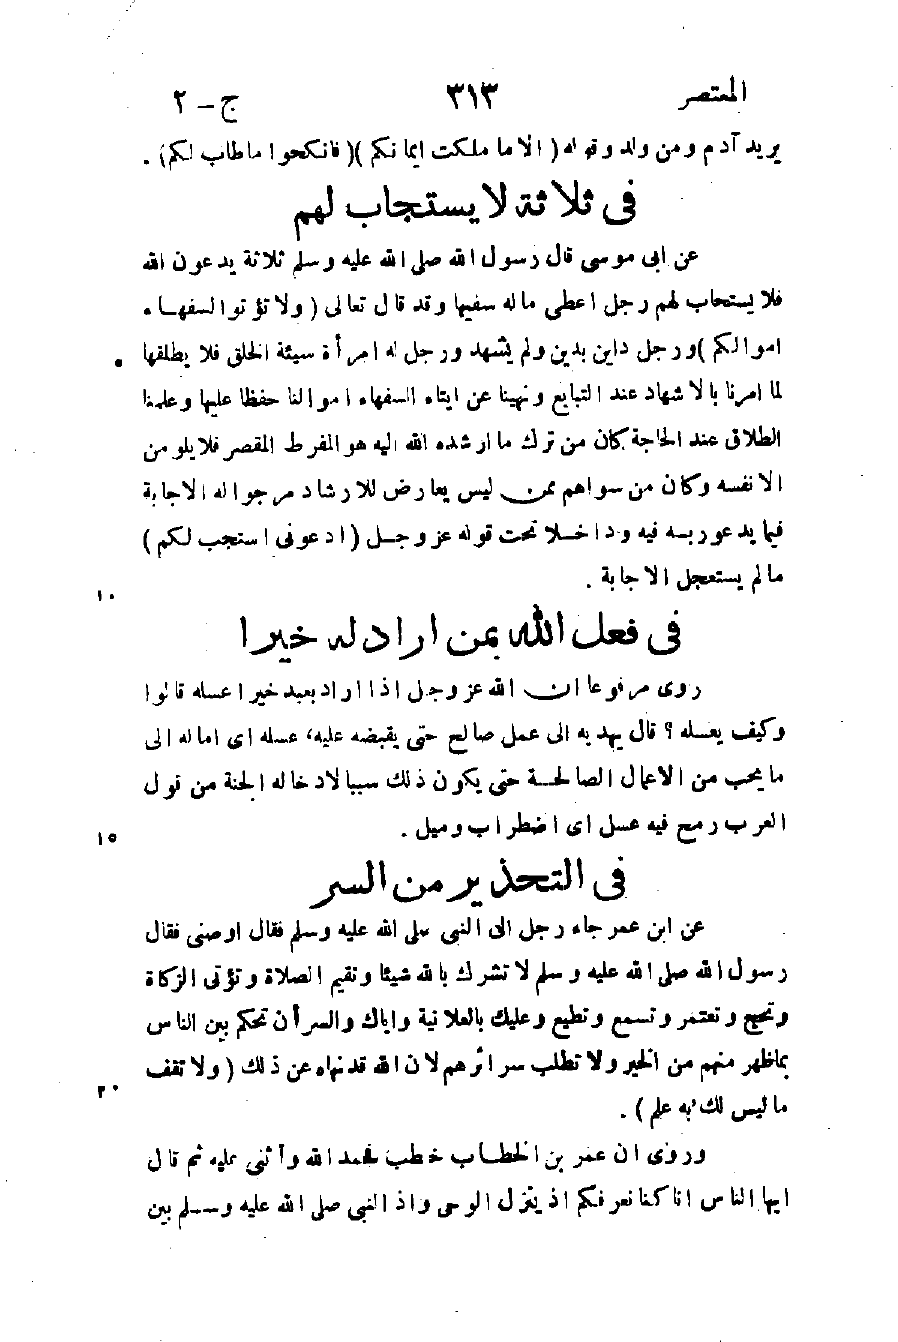 المعتصر ٣١٣ ج - ٢
يريد آدم ومن ولد وقوله ( الا ما ملكت ايمانكم )( فانكحوا ما طاب لكم) .
فى ثلاثة لا يستجاب لهم
عن ابى موسى قال رسول الله صلى الله عليه وسلم ثلاثة يدعون الله
فلا يستجاب لهم رجل اعطى ماله سفيها وقد قال تعالى ( ولا تؤتوا السفهاء
اموالكم )ورجل داين بدين ولم يشهد ورجل له امرأة سيئة الخلق فلا يطلقها ٠
لما امرنا بالاشهاد عند التبايع ونهينا عن ايتاء السفهاء اموالنا حفظا عليها وعلمنا
الطلاق عند الحاجة كان من ترك ما ارشده الله اليه هو المفرط المقصر فلا يلومن
الا نفسه وكان من سواهم ممن ليس يعارض للارشاد مرجوا له الاجابة
فيما يدعو ربه فيه وداخلا تحت قوله عز وجل ( ادعونى استجب لكم )
ما لم يستعجل الاجابة .
١٠
فى فعل الله بمن اراد له خيرا
روى مرفوعا ان الله عز وجل اذا اراد بعبد خيرا عسله قالوا
وكيف يعسله ؟ قال يهديه الى عمل صالح حتى يقبضه عليه، عسله اى اماله الى
ما يحب من الاعمال الصالحة حتى يكون ذلك سببا لادخاله الجنة من قول
العرب رمح فيه عسل اى اضطراب وميل .
١٥
فى التحذير من السر
عن ابن عمر جاء رجل الى النبى صلى الله عليه وسلم فقال اوصنى فقال
رسول الله صلى الله عليه وسلم لا تشرك بالله شيئا وتقيم الصلاة وتؤتى الزكاة
وتحج وتعتمر وتسمع وتطيع وعليك بالعلانية واياك والسر أن تحكم بين الناس
بما ظهر منهم من الخير ولا تطلب سرائرهم لان الله قد نهاه عن ذلك ( ولا تقف
٢٠
ما ليس لك به علم ) .
وروى ان عمر بن الخطاب خطب فحمد الله وأثنى عليه ثم قال
ايها الناس انا كنا نعرفكم اذ ينزل الوحى واذ النبى صلى الله عليه وسلم بين